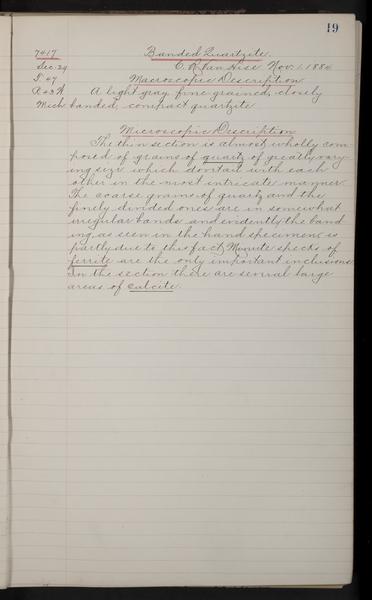 19
7417 Banded Quartzite.
Sec. 29 C. R. Van Hise Nov. 1. 1884.
T 47 Macroscopic Description
A light gray, fine grained, closely
Mich banded, compact quartzite
Microscopic Description
The thin section is almost wholly com-
posed of grains of quartz of greatly vary-
ing size which dovetail with each
other in the most intricate manner.
The coarse grains of quartz and the
finely divided ones are in somewhat
irregular bands and evidently the band
ing, as seen in the hand specimen is
partly due to this fact. Minute specks of
ferrite are the only important inclusions.
In the section there are several large
areas of calcite.